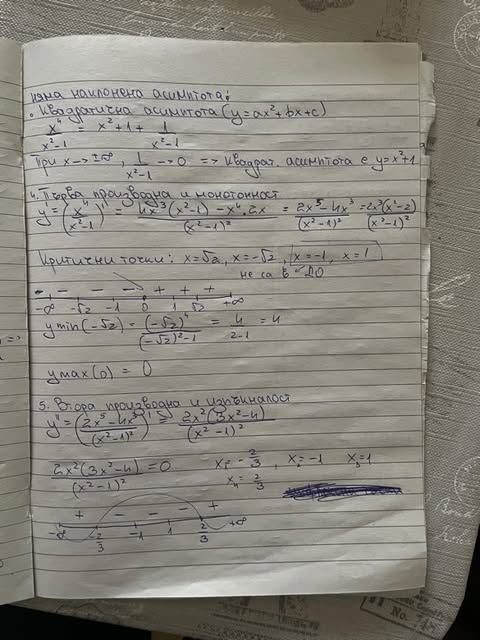 няма наклонена асимптота:
• Квадратична асимптота (y=ax²+bx+c)
x⁴/(x²-1) = x²+1+ 1/(x²-1)
При x→±∞, 1/(x²-1) →0 => Квадрат. асимптота е y=x²+1
4. Първа производна и монотонност
y'=(x⁴/(x²-1))' = (4x³(x²-1)-x⁴.2x)/(x²-1)² = (2x⁵-4x³)/(x²-1)² = 2x³(x²-2)/(x²-1)²
Критични точки: x=√2, x=-√2, x=-1, x=1
не са в ДО
- - - - + + +
-∞ -√2 -1 0 1 √2 +∞
y min(-√2)= (-√2)⁴/((-√2)²-1) = 4/(2-1) = 4
y max(0) = 0
5. Втора производна и изпъкналост
y''=((2x⁵-4x³)/(x²-1)²)' = 2x²(3x²-4)/(x²-1)²
2x²(3x²-4)/(x²-1)² =0 x₁=-2/3, x₂=-1 x₃=1
x₄=2/3
+ - - - +
-∞ 2/3 -1 1 2/3 +∞
No.